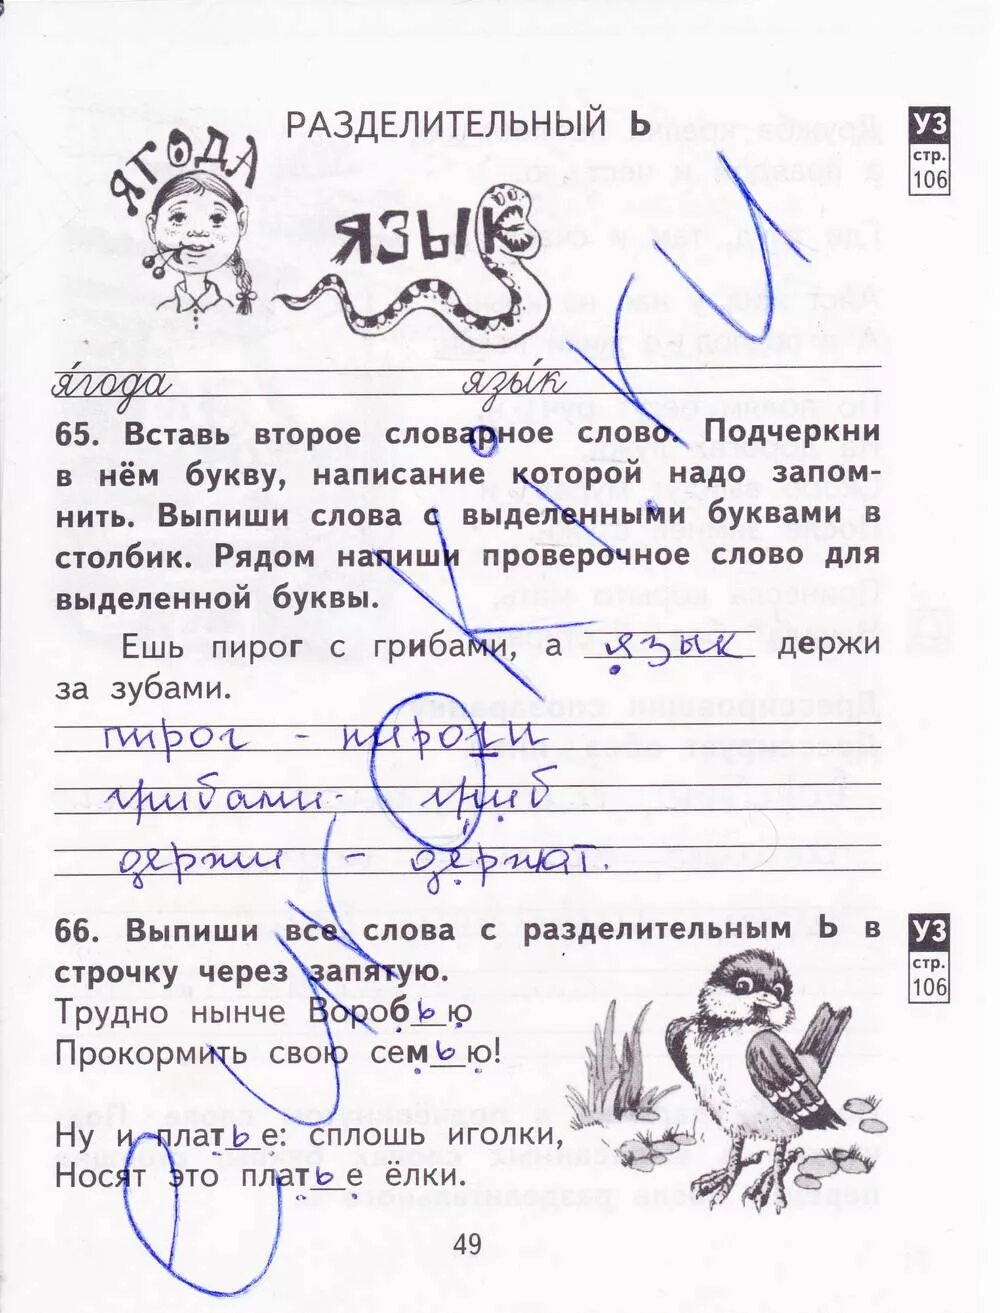 РАЗДЕЛИТЕЛЬНЫЙ Ь
УЗ
стр.
106
ЯГОДА
ЯЗЫК
я́года язы́к
65. Вставь второе словарное слово. Подчеркни
в нём букву, написание которой надо запом-
нить. Выпиши слова с выделенными буквами в
столбик. Рядом напиши проверочное слово для
выделенной буквы.
Ешь пирог с грибами, а язык держи
за зубами.
пирог - пироги
грибами - гриб
держи - держат.
66. Выпиши все слова с разделительным Ь в
строчку через запятую.
УЗ
стр.
106
Трудно нынче Воробью
Прокормить свою семью!
Ну и платье: сплошь иголки,
Носят это платье ёлки.
49